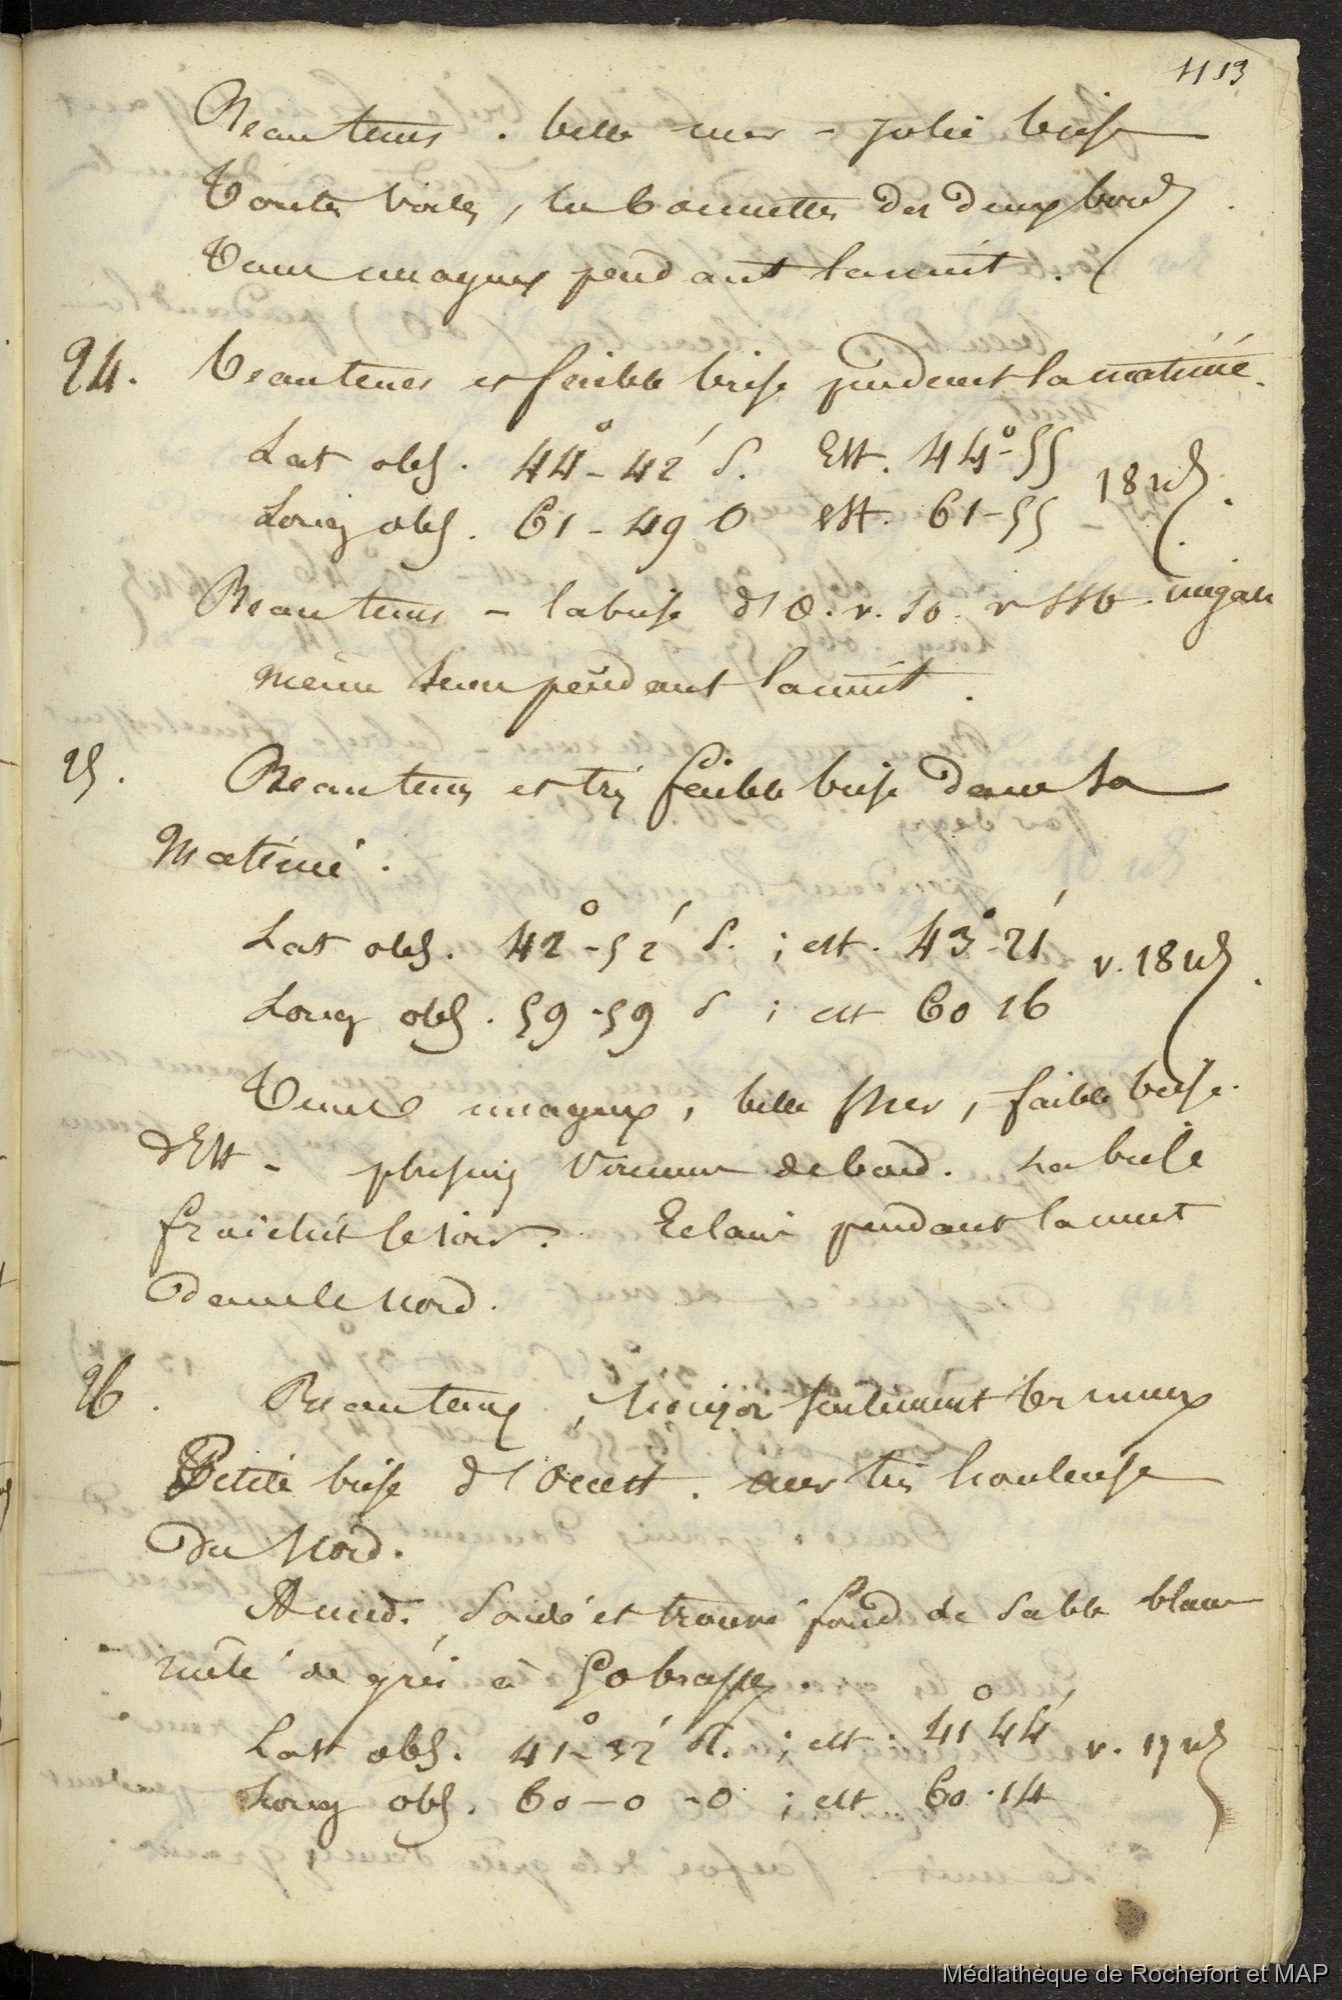 413
Beau tems . belle mer - jolie brise
Toutes voiles, les bonnettes des deux bords
Tems nuageux pendant la nuit .
24. Beau tems et faible brise pendant la matinée.
Lat obs. 44°-42' S. Est. 44°-55
Long obs. 61-49 O est. 61-55
18 nds.
Beau tems - la brise d'O. v. SO. v SSO. inégale
même tems pendant la nuit .
25. Beau tems et très faible brise dans la
Matinée .
Lat obs. 42°-52' S. ; est. 43°-21'
Long obs. 59-59 S ; est 60 16
v. 18 nds.
Tems nuageux, belle Mer, faible brise
d'Est - plusieurs viremens de bord. La brise
fraichit le soir. Eclairs pendant la nuit
Dans le Nord.
26. Beau tems, horizon seulement brumeux
Petite brise d'Ouest. mer très houleuse
Du Nord.
A midi, Sondé et trouvé fond de Sable blanc
mêlé de gris à 50 brasses.
Lat obs. 41°-32' S. ; est. 41° 44'
Long obs. 60-0-0 ; est 60.14
v. 17 nds
Médiathèque de Rochefort et MAP